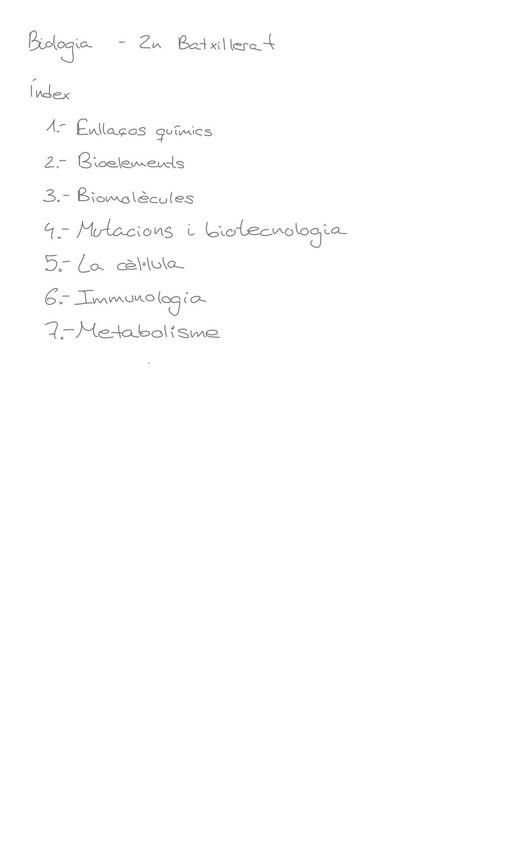 Biologia - 2n Batxillerat
Índex
1.- Enllaços químics
2.- Bioelements
3.- Biomolècules
4.- Mutacions i biotecnologia
5.- La cèl·lula
6.- Immunologia
7.- Metabolisme